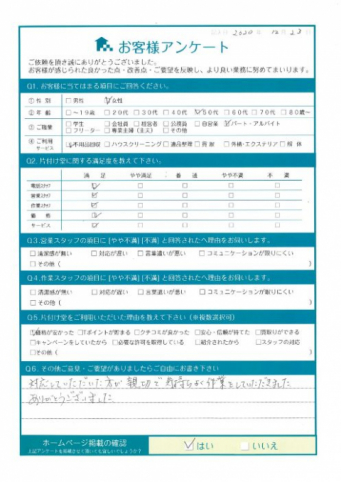 2020 12 23
お客様アンケート
ご依頼を頂き誠にありがとうございました。
お客様が感じられた良かった点・改善点・ご要望を反映し、より良い業務に努めてまいります。
Q1. お客様に当てはまる項目にご回答ください。
① 性 別 □男性 ☑女性
② 年 齢 □~19才 □20代 □30代 □40代 ☑50代 □60代 □70代 □80歳~
③ ご職業 □学生 □会社員 □経営者 □公務員 □自営業 ☑パート・アルバイト
□フリーター □専業主婦(主夫) □その他
④ ご利用サービス ☑不用品回収 □ハウスクリーニング □遺品整理 □買取 □外構・エクステリア □解体
Q2. 片付け堂に関する満足度を教えて下さい。
満 足 やや満足 普 通 やや不満 不 満
電話スタッフ ☑ □ □ □ □
営業スタッフ ☑ □ □ □ □
作業スタッフ ☑ □ □ □ □
価 格 ☑ □ □ □ □
サービス ☑ □ □ □ □
Q3.営業スタッフの項目に【やや不満】【不満】と回答された方へ理由をお伺いします。
□清潔感が無い □対応が悪い □言葉遣いが悪い □コミュニケーションが取りにくい
□その他( )
Q4.作業スタッフの項目に【やや不満】【不満】と回答された方へ理由をお伺いします。
□清潔感が無い □対応が遅い □言葉遣いが悪い □コミュニケーションが取りにくい
□その他( )
Q5.片付け堂をご利用いただいた理由を教えて下さい(※複数選択可)
☑価格が安かった □Tポイントが貯まる □クチコミが良かった □安心・信頼が持てた □買取りができる
□キャンペーンをしていたから □必要な許可を取得している □紹介されたから □スタッフの対応
□その他( )
Q6. その他ご意見・ご要望がありましたらご自由にお書き下さい
対応していただいた方が親切で気持ちよく作業をしていただきました
ありがとうございました
ホームページ掲載の確認
☑はい □いいえ